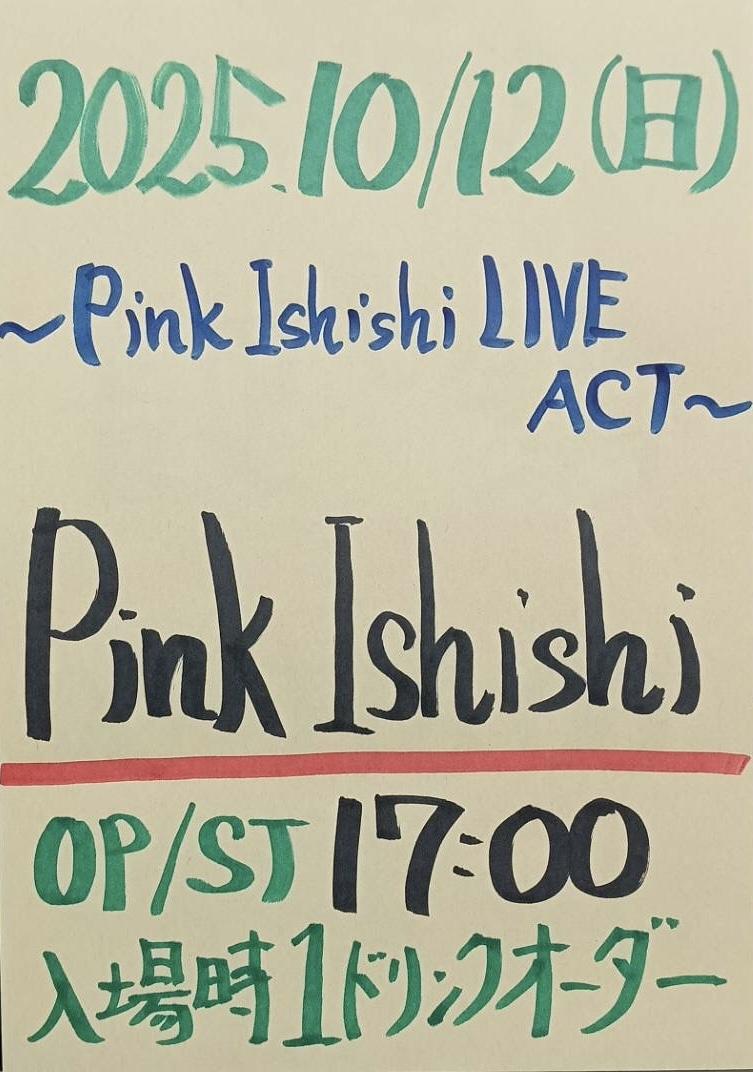 2025.10/12(日)
~Pink Ishishi LIVE
ACT~
Pink Ishishi
OP/ST 17:00
入場時1ドリンクオーダー